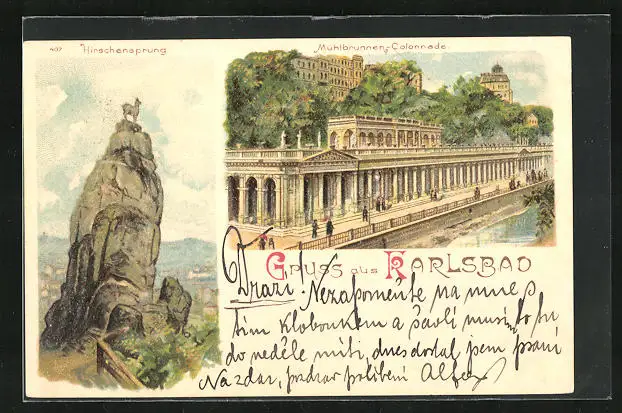 407 Hirschensprung
Mühlbrunnen-Colonnade.
Gruss aus Karlsbad
Drazí! Nezapomeňte na mne s
tím kloboukem a šavlí musí to tu
do neděle míti, dnes dodal jsem psaní
Na zdar, pozdrav políbení